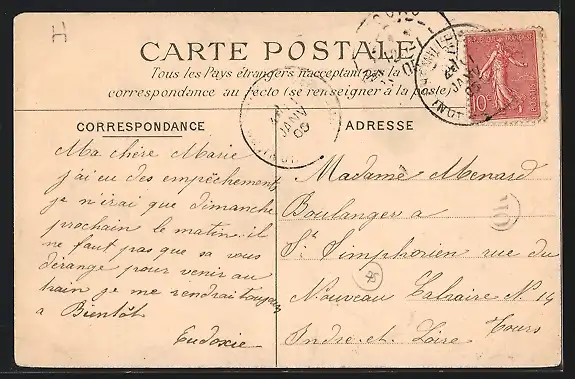 H
CARTE POSTALE
Tous les Pays étrangers n'acceptent pas la
correspondance au recto (se renseigner à la poste)
CORRESPONDANCE
Ma chère Marie
j'ai eu des empêchement
je n'irai que dimanche
prochain le matin il
ne faut pas que sa vous
dérange pour venir au
train je me rendrai toujours
a Bientôt
Eudoxie
ADRESSE
Madame Menard
Boulanger a
St Simphorien rue du
Nouveau Calvaire N. 14
Tours
Indre-et-Loire
10
JANV
05
JANV